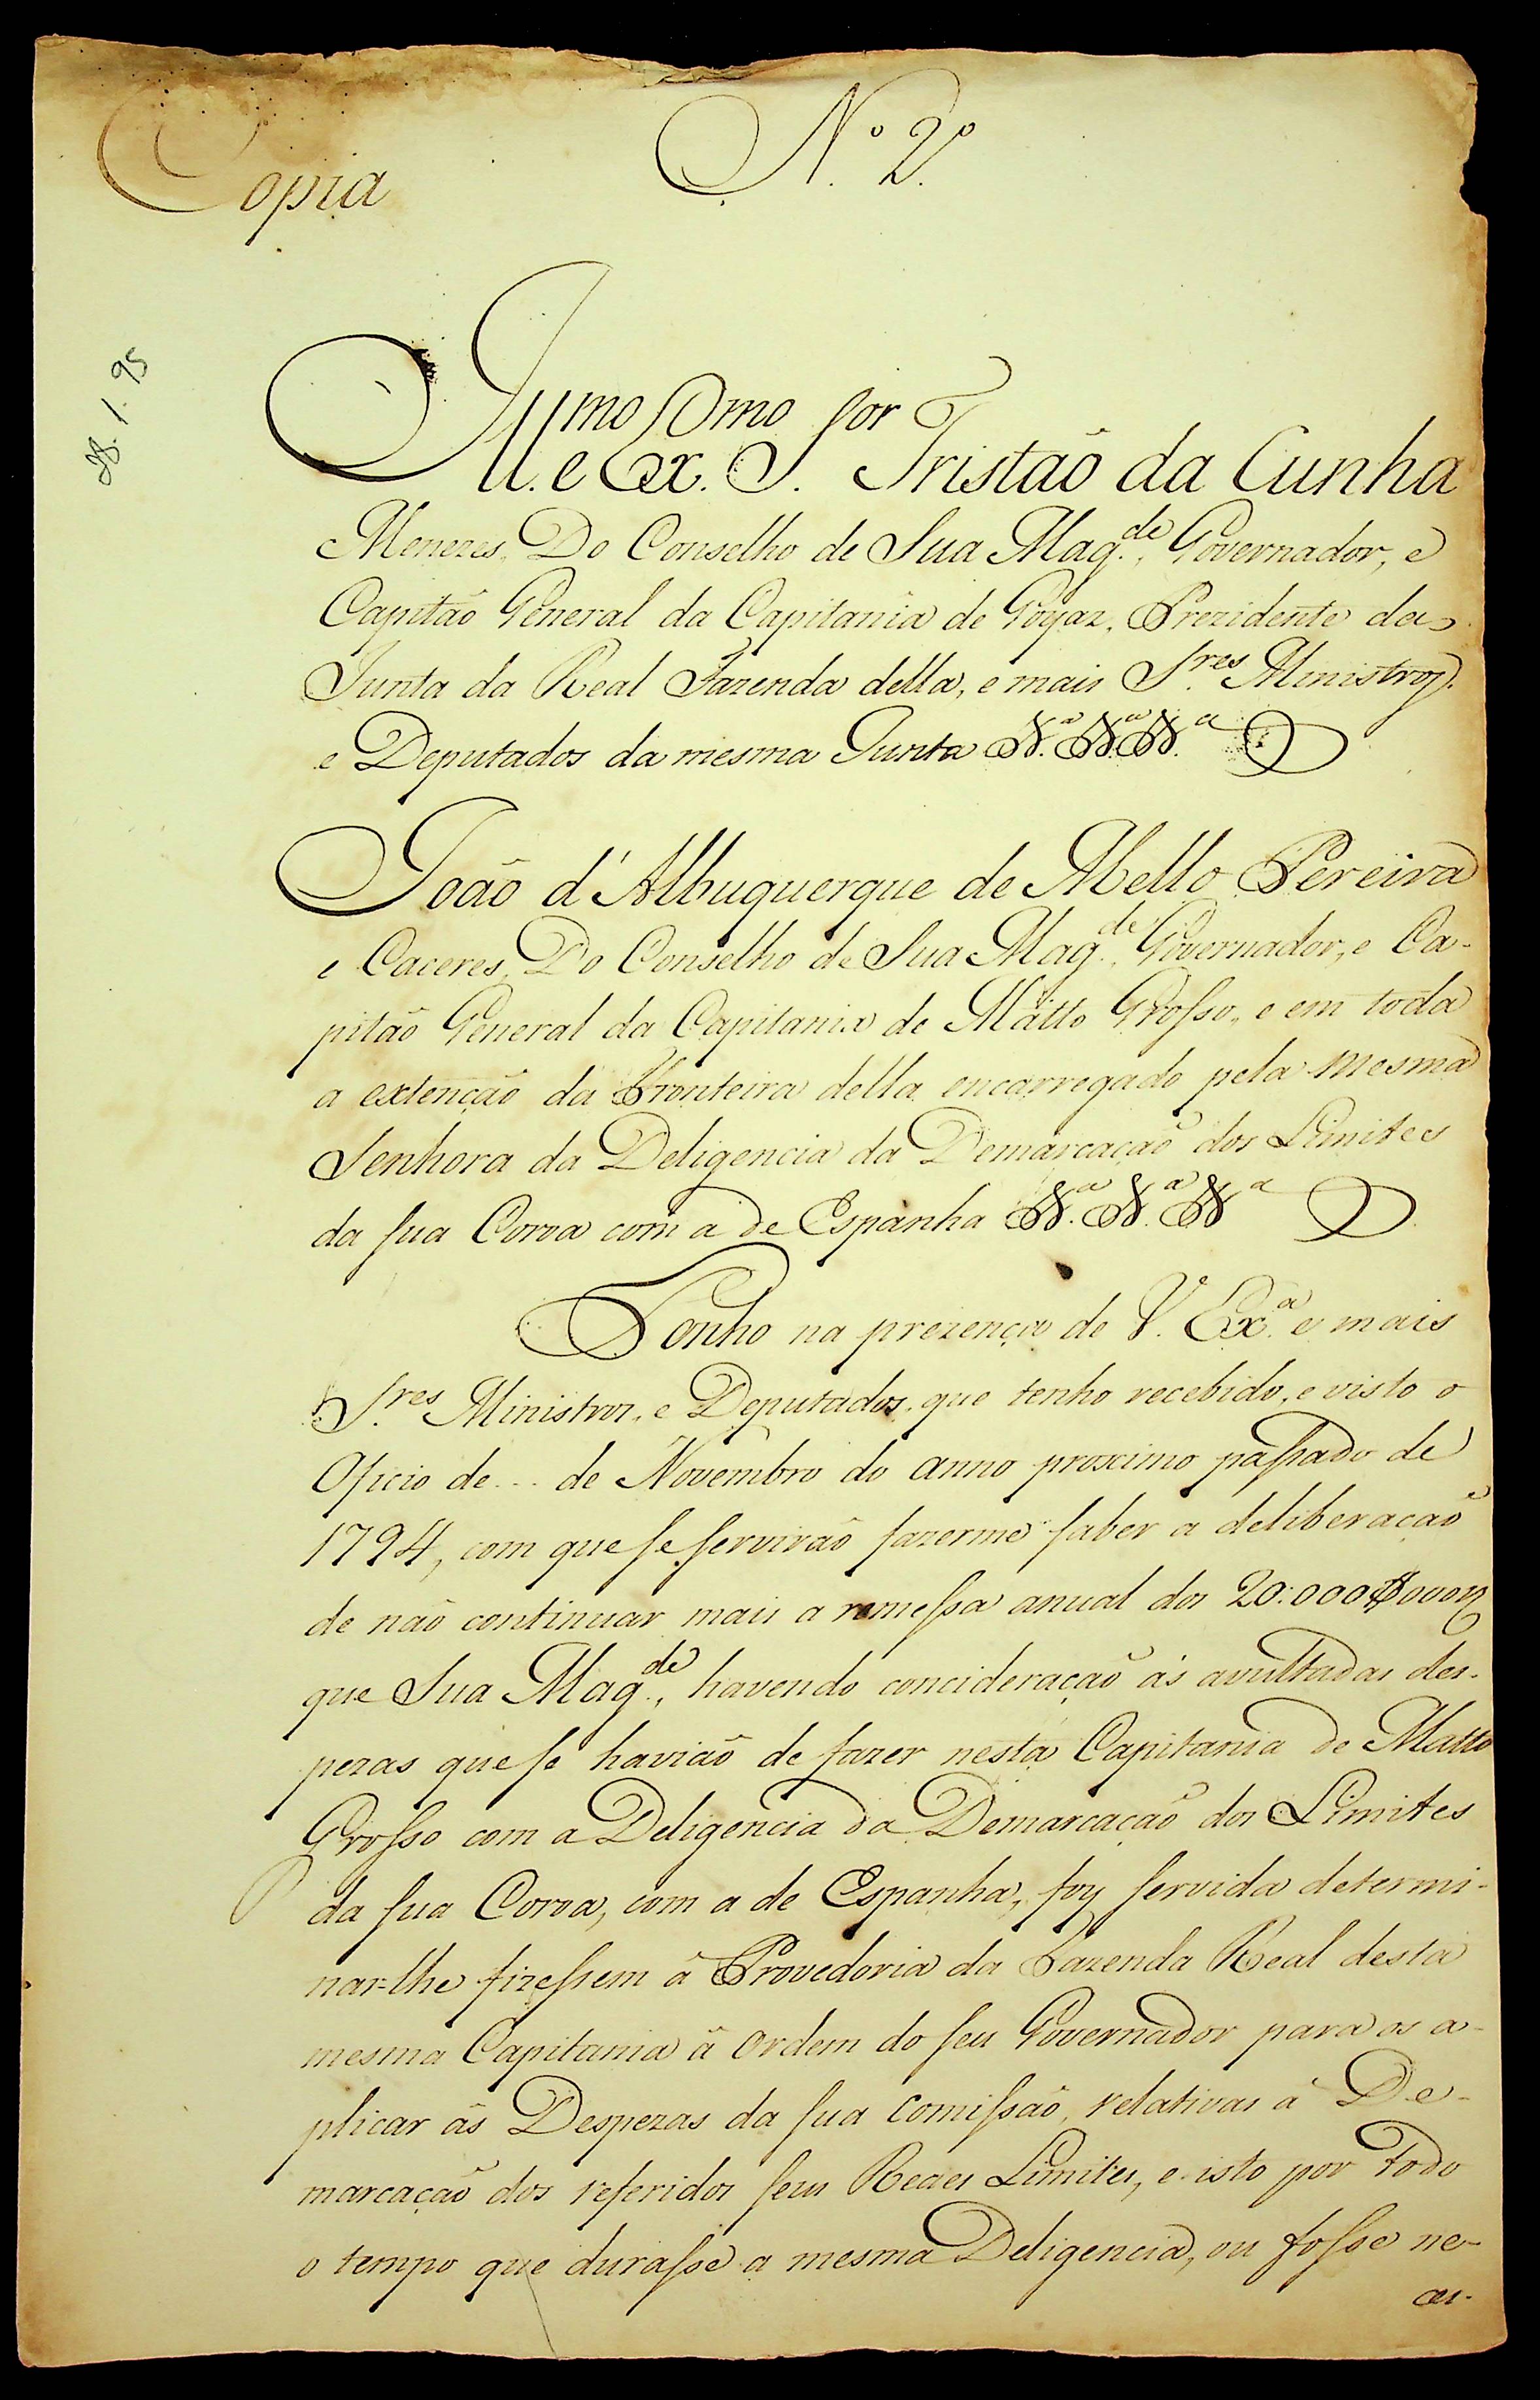 Copia
N.º 2.º
28. 1. 95
Ill.mo e Ex.mo S.or Tristaõ da Cunha
Menezes, Do Conselho de Sua Mag.de, Governador, e
Capitaõ General da Capitania de Goyaz, Prezidente da
Junta da Real Fazenda della, e mais S.res Ministros,
e Deputados da mesma Junta &.a &.a &.a
Joaõ d'Albuquerque de Mello Pereira
e Caceres, Do Conselho de Sua Mag.de, Governador, e Ca-
pitaõ General da Capitania de Matto Grosso, e em toda
a extençaõ da Fronteira della encarregado pela mesma
Senhora da Deligencia da Demarcaçaõ dos Limites
da sua Coroa com a de Espanha &.a &.a &.a
Ponho na prezença de V. Ex.a e mais
S.res Ministros, e Deputados, que tenho recebido, e visto o
Oficio de ... de Novembro do anno proximo passado de
1794, com que se servíraõ fazerme saber a deliberaçaõ
de naõ continuar mais a remessa anual dos 20:000$000rs
que Sua Mag.de, havendo concideraçaõ ás avultadas des-
pezas que se haviaõ de fazer nesta Capitania de Matto
Grosso com a Deligencia da Demarcaçaõ dos Limites
da sua Coroa, com a de Espanha, foy servida determi-
nar-lhe fizessem á Provedoria da Fazenda Real desta
mesma Capitania á ordem do seu Governador para os a-
plicar ás Despezas da sua Comissaõ, relativas á De-
marcaçaõ dos referidos seus Reaes Limites, e isto por todo
o tempo que durasse a mesma Deligencia, ou fosse ne-
ces-